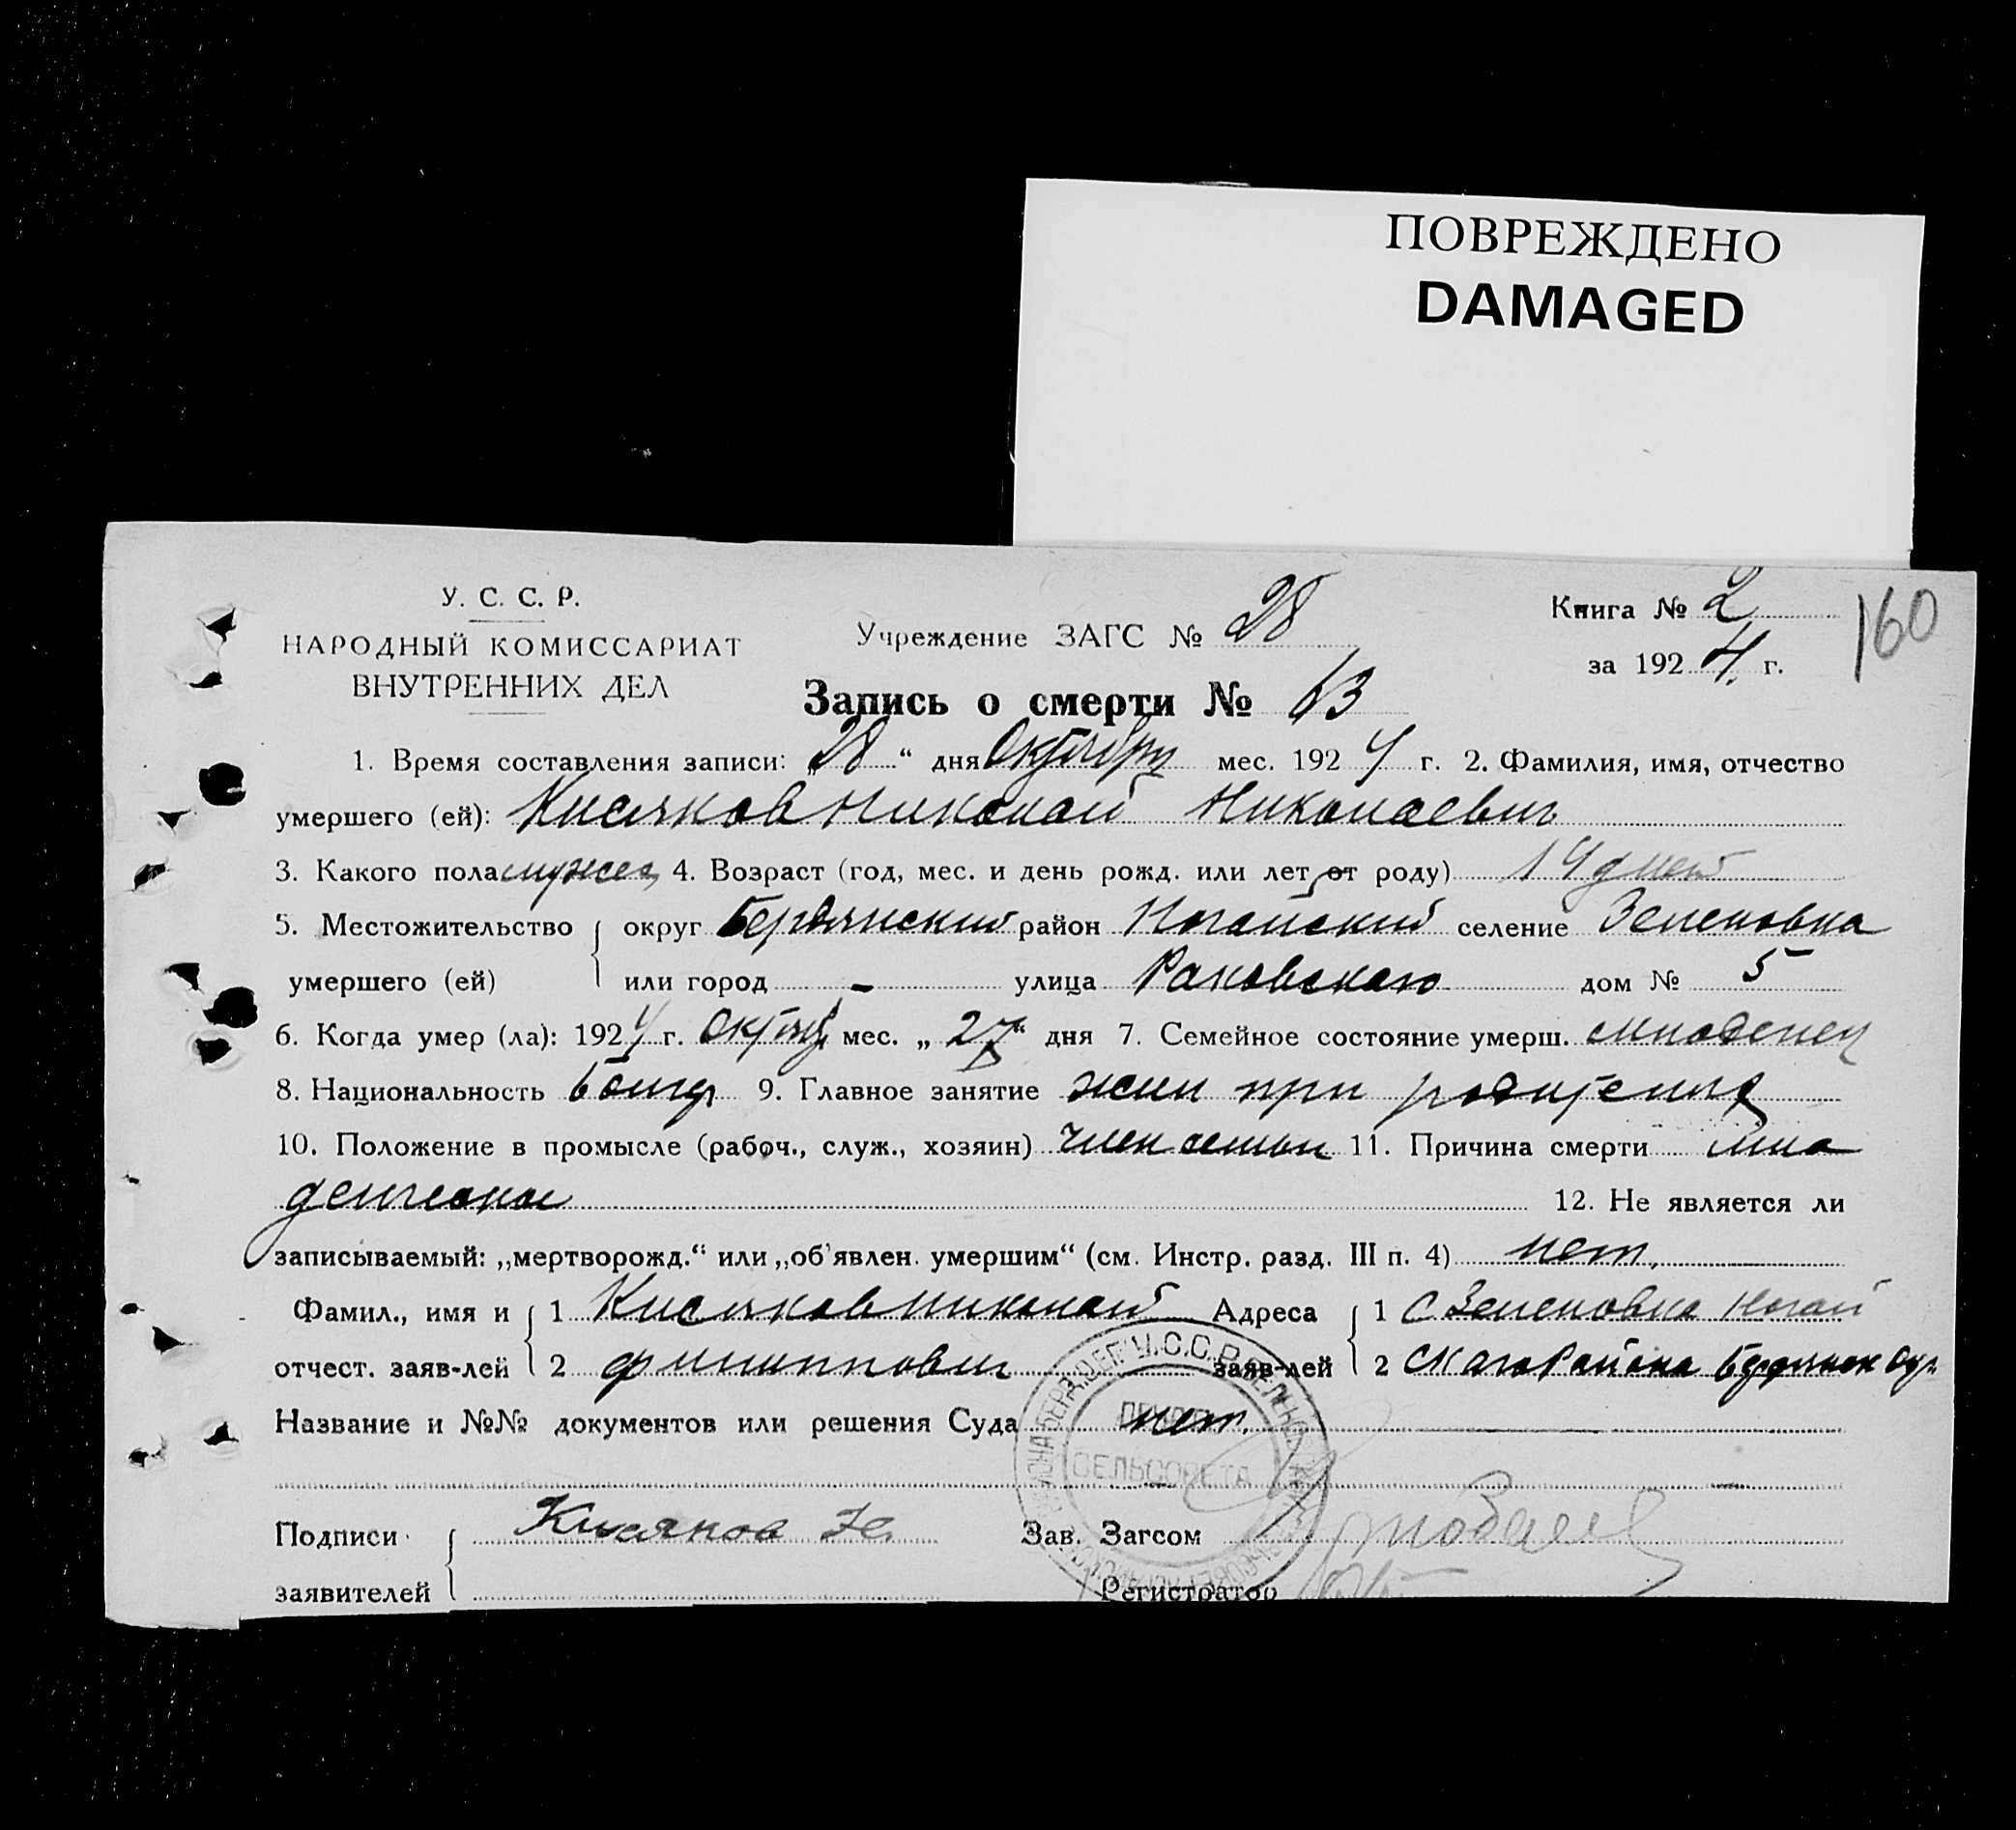 ПОВРЕЖДЕНО
DAMAGED
У. С. С. Р.
НАРОДНЫЙ КОМИССАРИАТ
ВНУТРЕННИХ ДЕЛ
Учреждение ЗАГС № 28
Книга № 2
за 1924 г.
160
Запись о смерти № 63
1. Время составления записи: „28“ дня Октября мес. 1924 г. 2. Фамилия, имя, отчество
умершего (ей): Кисяков Николай Николаевич
3. Какого пола мужск 4. Возраст (год, мес. и день рожд. или лет от роду) 14 дней
5. Местожительство округ Бердянский район Ногайский селение Зеленовка
умершего (ей) или город - улица Раковского дом № 5
6. Когда умер (ла): 1924 г. Октяб мес. „27“ дня 7. Семейное состояние умерш. младенец
8. Национальность болгар 9. Главное занятие жил при родителях
10. Положение в промысле (рабоч., служ., хозяин) член семьи 11. Причина смерти мла
денческое 12. Не является ли
записываемый: „мертворожд.“ или „об'явлен. умершим“ (см. Инстр. разд. III п. 4) нет
Фамил., имя и 1 Кисяков Николай Адреса 1 С Зеленовка Ногай
отчест. заяв-лей 2 филиппович заяв-лей 2 ского Района Бердянск Окр.
Название и №№ документов или решения Суда нет.
СЕЛЬСОВЕТА
У.С.С.Р.
Подписи Кисяков Зав. Загсом
заявителей Регистратор